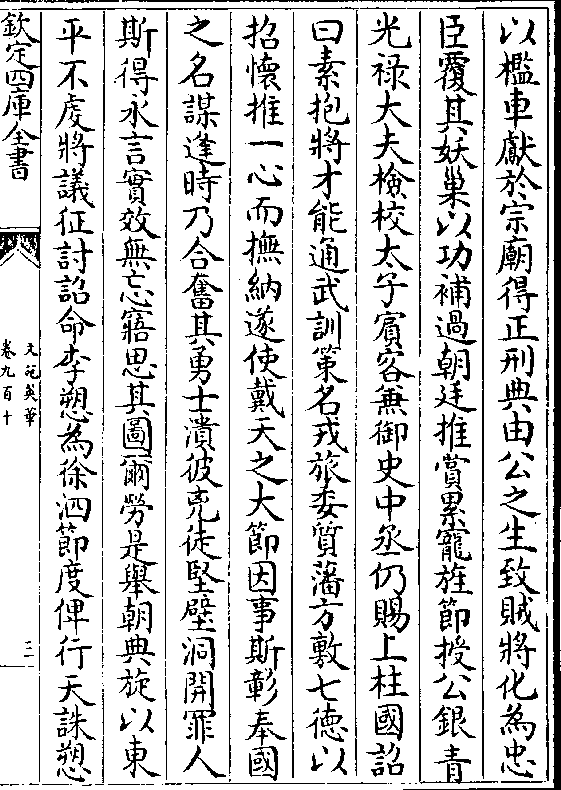 以檻車獻於宗廟得正刑典由公之生致賊將化為忠
臣覆其妖巢以功補過朝廷推賞累寵旌節授公銀青
光祿大夫檢校太子賓客兼御史中丞仍賜上柱國詔
曰素抱將才能通武訓策名戎旅委質藩方敷七德以
招懷推一心而撫納遂使戴天之大節因事斯彰奉國
之名謀逢時乃合奮其勇士潰彼兇徒堅壁洞開罪人
斯得永言實效無忘寤思其圖爾勞是舉朝典旋以東
平不䖍將議征討詔命李愬為徐泗節度俾行天誅愬
欽定四庫全書
文苑英華
卷九百十
三